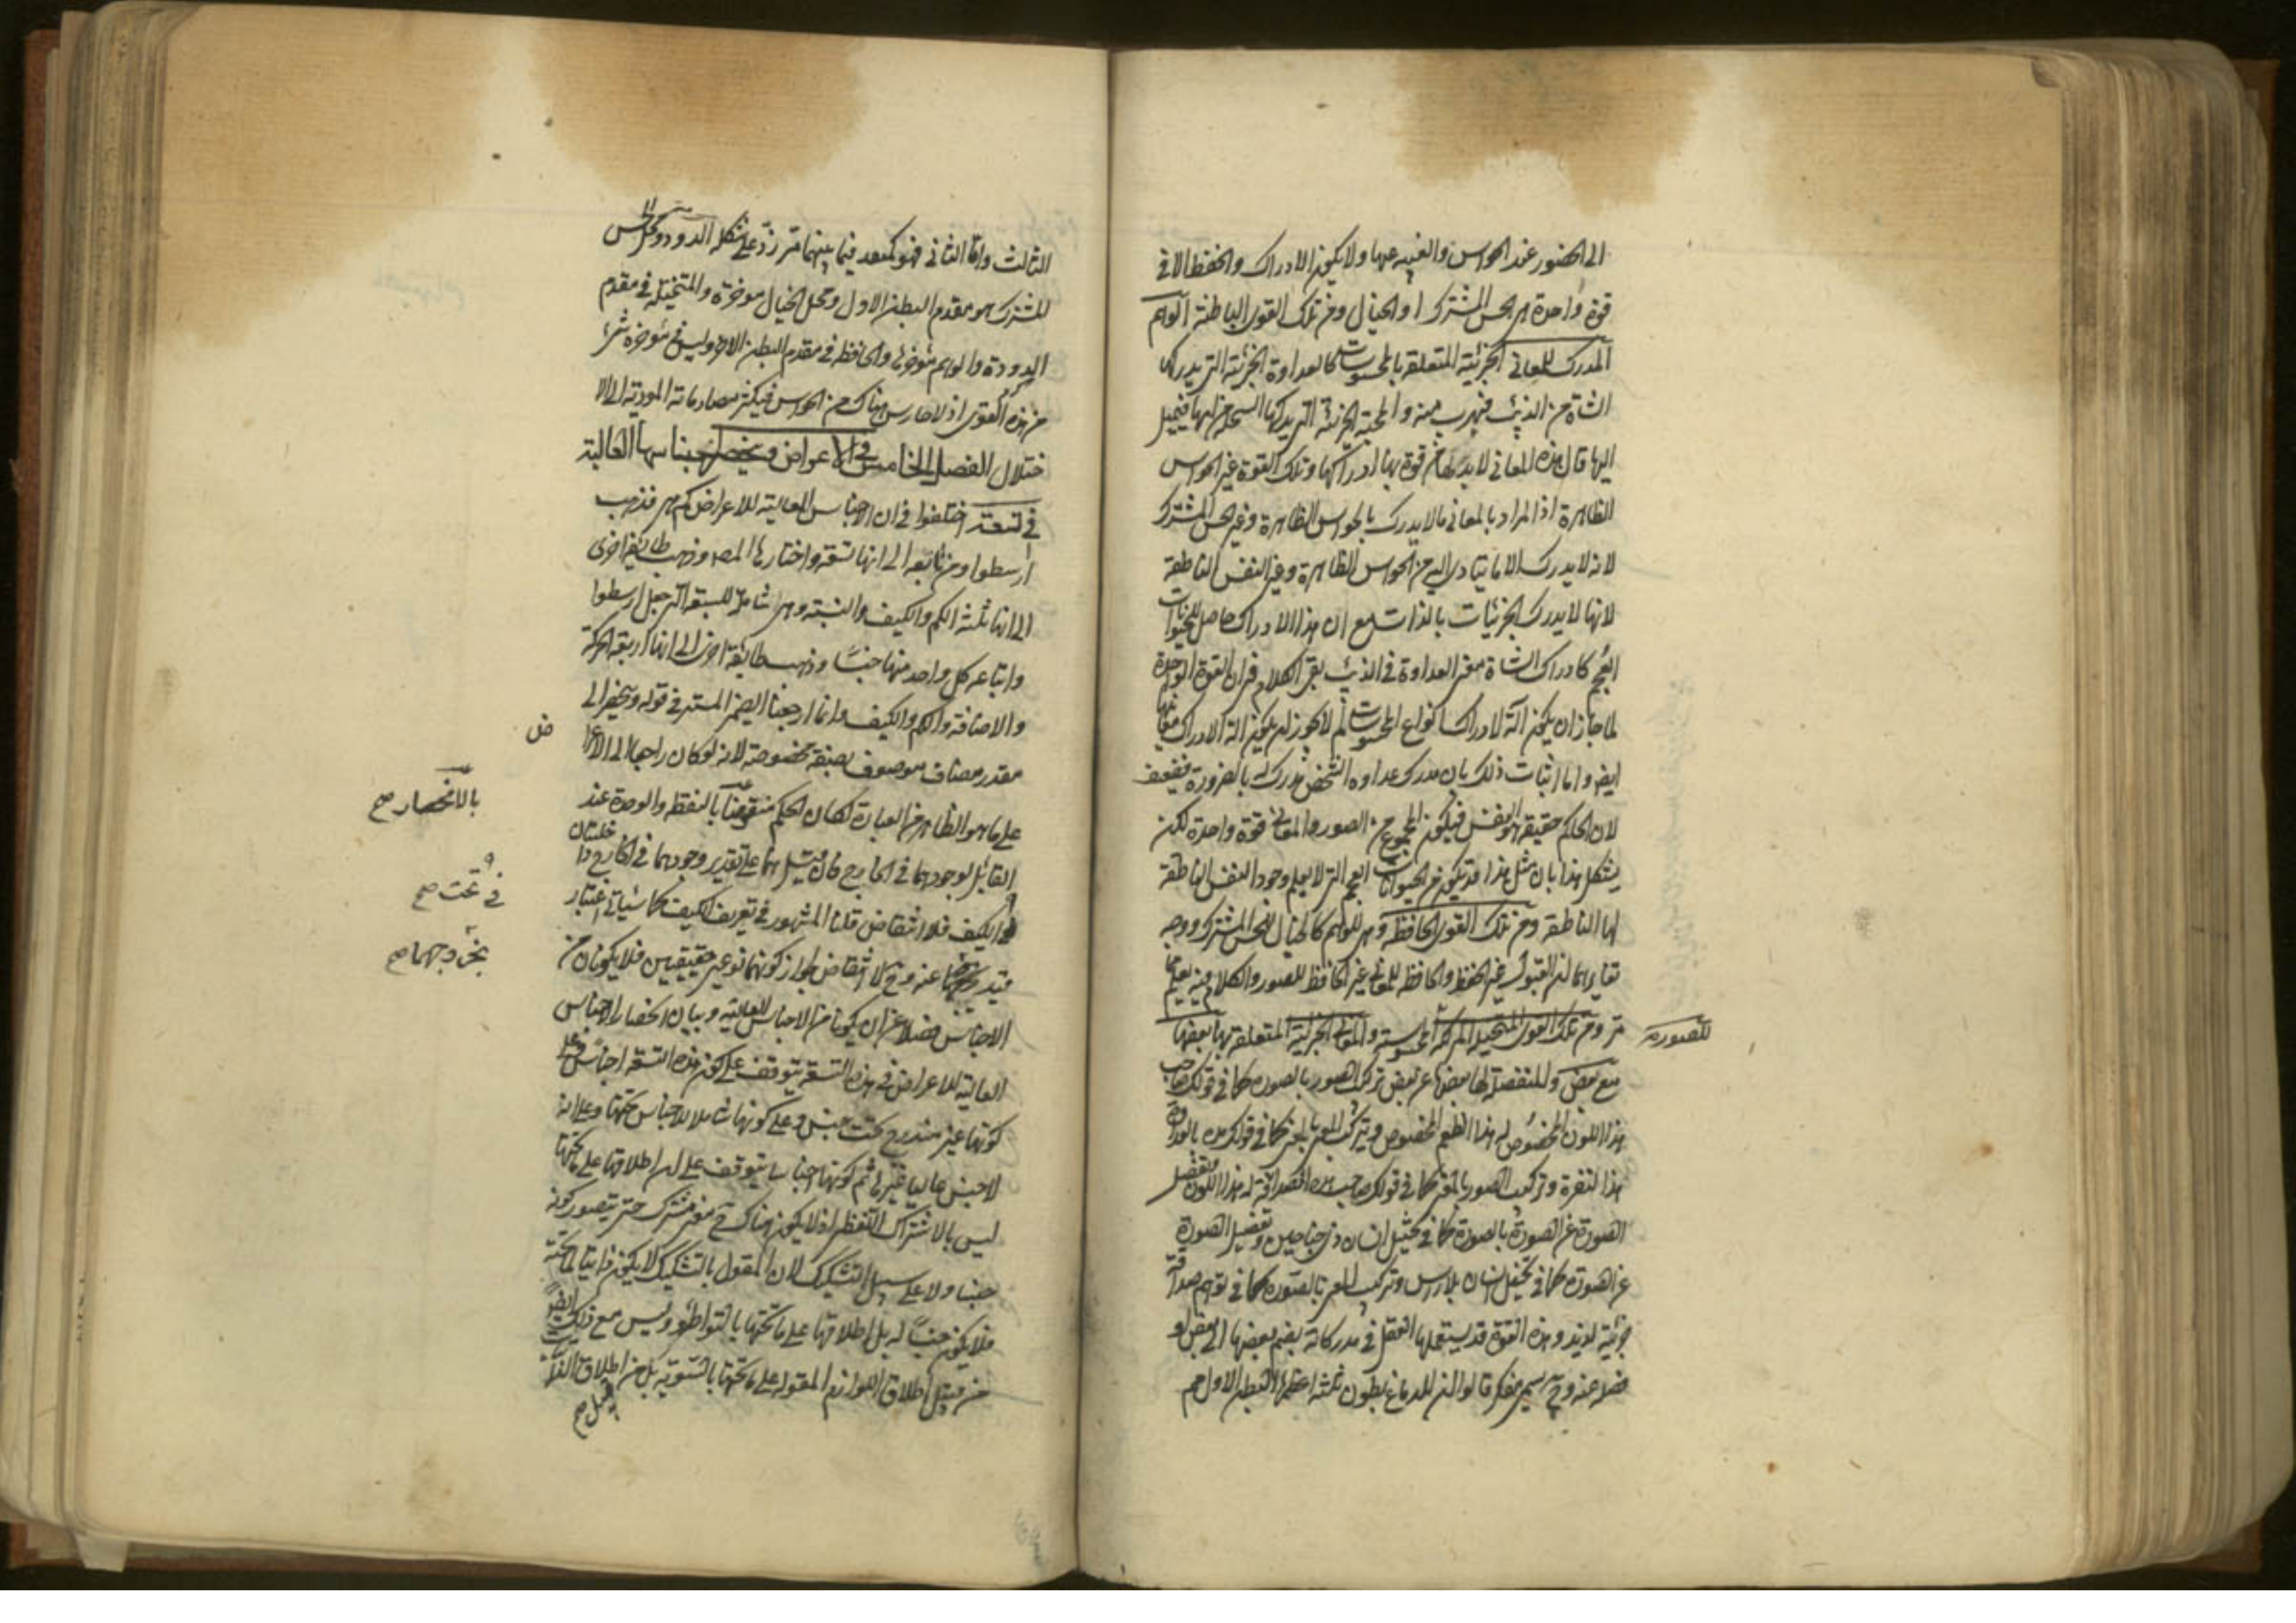 الى الحضور عند الحواس والغيبه عنها ولا يكون الادراك والحفظ الا فى
قوة واحدة هى الحس المشترك او الخيال ومن تلك القوى الباطنة الواهم
المدرك للمعانى الجزئية المتعلقة بالمحسوسات كالعداوة الجزئية التى يدركها
الشاة من الذئب فيهرب منه والمحبة الجزئية التى يدركها السخلة من امها فيميل
اليها قال هذه المعانى لابد لها من قوة بها ادراكها وتلك القوة غير الحواس
الظاهرة اذ المراد بالمعانى ما لا يدرك بالحواس الظاهرة وغير الحس المشترك
لانه لا يدرك الا ما يتادى اليه من الحواس الظاهرة وغير النفس الناطقة
لانها لا يدرك الجزئيات بالذات مع ان هذا الادراك حاصل للحيوانات
العجم كادراك الشاة معنى العداوة فى الذئب بقى الكلام فى ان القوة الواحدة
لما جاز ان يكون آلة لادراك انواع المحسوسات لم لا يجوز ان يكون آلة لادراك معانيها
ايضا واما اثبات ذلك بان مدرك عداوة الشخص مدرك له بالضرورة فضعيف
لان الحاكم حقيقة هو النفس فيكون المجموع من الصور والمعانى قوة واحدة لكن
يشكل هذا بان مثل هذا قد يكون من الحيوانات العجم التى لا يعلم وجود النفس الناطقة
لها الناطقة ومن تلك القوى الحافظة وهى للواهم كالخيال للحس المشترك ووجه
تغايرهما ان القبول غير الحفظ والحافظ للمعانى غير الحافظ للصور والكلام فيه يعلم مما
مر ومن تلك القوى المتخيلة المركبة المحسوسة والمعانى الجزئية المتعلقة بها بعضها
للصورة
مع بعض والمنفصلة لها بعضها عن بعض تركب الصور بالصورة كما فى قولك صاحب
هذا اللون المخصوص له هذا الطعم المخصوص وتركيب المعنى بالمعنى كما فى قولك من له العداوة
هذا لنفرة وتركيب الصور بالمعنى كما فى قولك صاحب هذه الصداقة له هذا اللون وتفصيل
الصورة عن الصورة بالصورة كما فى تخيل انسان ذى جناحين وتفصيل الصورة
عن الصورة كما فى تخيل انسان بلا راس وتركيب المعنى بالصورة كما فى توهم صداقة
جزئية لزيد وهذه القوة قد يستعملها العقل فى مدركاته بضم بعضها الى بعض او
فصله عنه وح يسمى مفكرة قالوا ان للدماغ بطون ثلثة اعظمها البطن الاول ثم
الثالث واما الثانى فهو كمنفذ فيما بينهما مزرد على شكل الدودة ومحل الحس
المشترك هو مقدم البطن الاول ومحل الخيال موخره والمتخيلة فى مقدم
الدودة والواهم موخرها والحافظه فى مقدم البطن الاخر وليس فى موخره شئ
من هذه القوى اذ لا حارس هناك من الحواس فيكثر مصادماته المودية الى الا
ختلال الفصل الخامس فى الاعراض وينحصر اجناسها العالية
فى تسعة اختلفوا فى ان الاجناس العالية للاعراض كم هى فذهب
ارسطوا ومن تابعه الى انها تسعة واختارها المص وذهبت طائفة اخرى
الى انها ثلثة الكم والكيف والنسبة وهى شاملة للسبعة التى جعل ارسطوا
واتباعه كل واحد منها جنسا وذهبت طائفة اخرى الى انها اربعة الحركة
والاضافة والكم والكيف وانما ارجعنا الضمير المستتر فى قوله وينحصر الى
مقدر مضاف موصوف بصفة مخصوصة لانه لو كان راجعا الى الاعرا
ض
على ما هو الظاهر من العبارة لكان الحكم منقوضا بالنقطة والوحدة عند
بالانحصار صح
القائل لوجودهما فى الخارج فان قيل هما على تقدير وجودهما فى الخارج داخلتان
فى تحت صح
الكيف فلا انتقاض قلنا المشهور فى تعريف الكيف كما سياتى اعتبار
قيد يخرجهما عنه وح لا انتقاض لجواز كونهما نوعين حقيقيين فلا يكونان من
بخروجهما صح
الاجناس فضلا عن ان يكونا من الاجناس العالية وبيان انحصار الاجناس
العالية للاعراض فى هذه التسعة يتوقف على كون هذه التسعة اجناسا وعلى
كونها غير مندرج تحت جنس وعلى كونها شاملا للاجناس تحتها وعلى انه
لا جنس عاليا غيرها ثم كونها اجناسا يتوقف على ان اطلاقها على ما تحتها
ليس بالاشتراك اللفظى اذ لا يكون هناك ح معنى مشترك حتى يتصور كونه
جنسا ولا على سبيل التشكيك لان المقول بالتشكيك لا يكون ذاتيا لما تحته
فلا يكون جنسا له بل اطلاقها على ما تحتها بالتواطؤ وليس مع ذلك ايضا
من قبيل اطلاق اللوازم المقوله على ما تحتها بالتسوية بل من اطلاق الذاتيات
قبيل صح